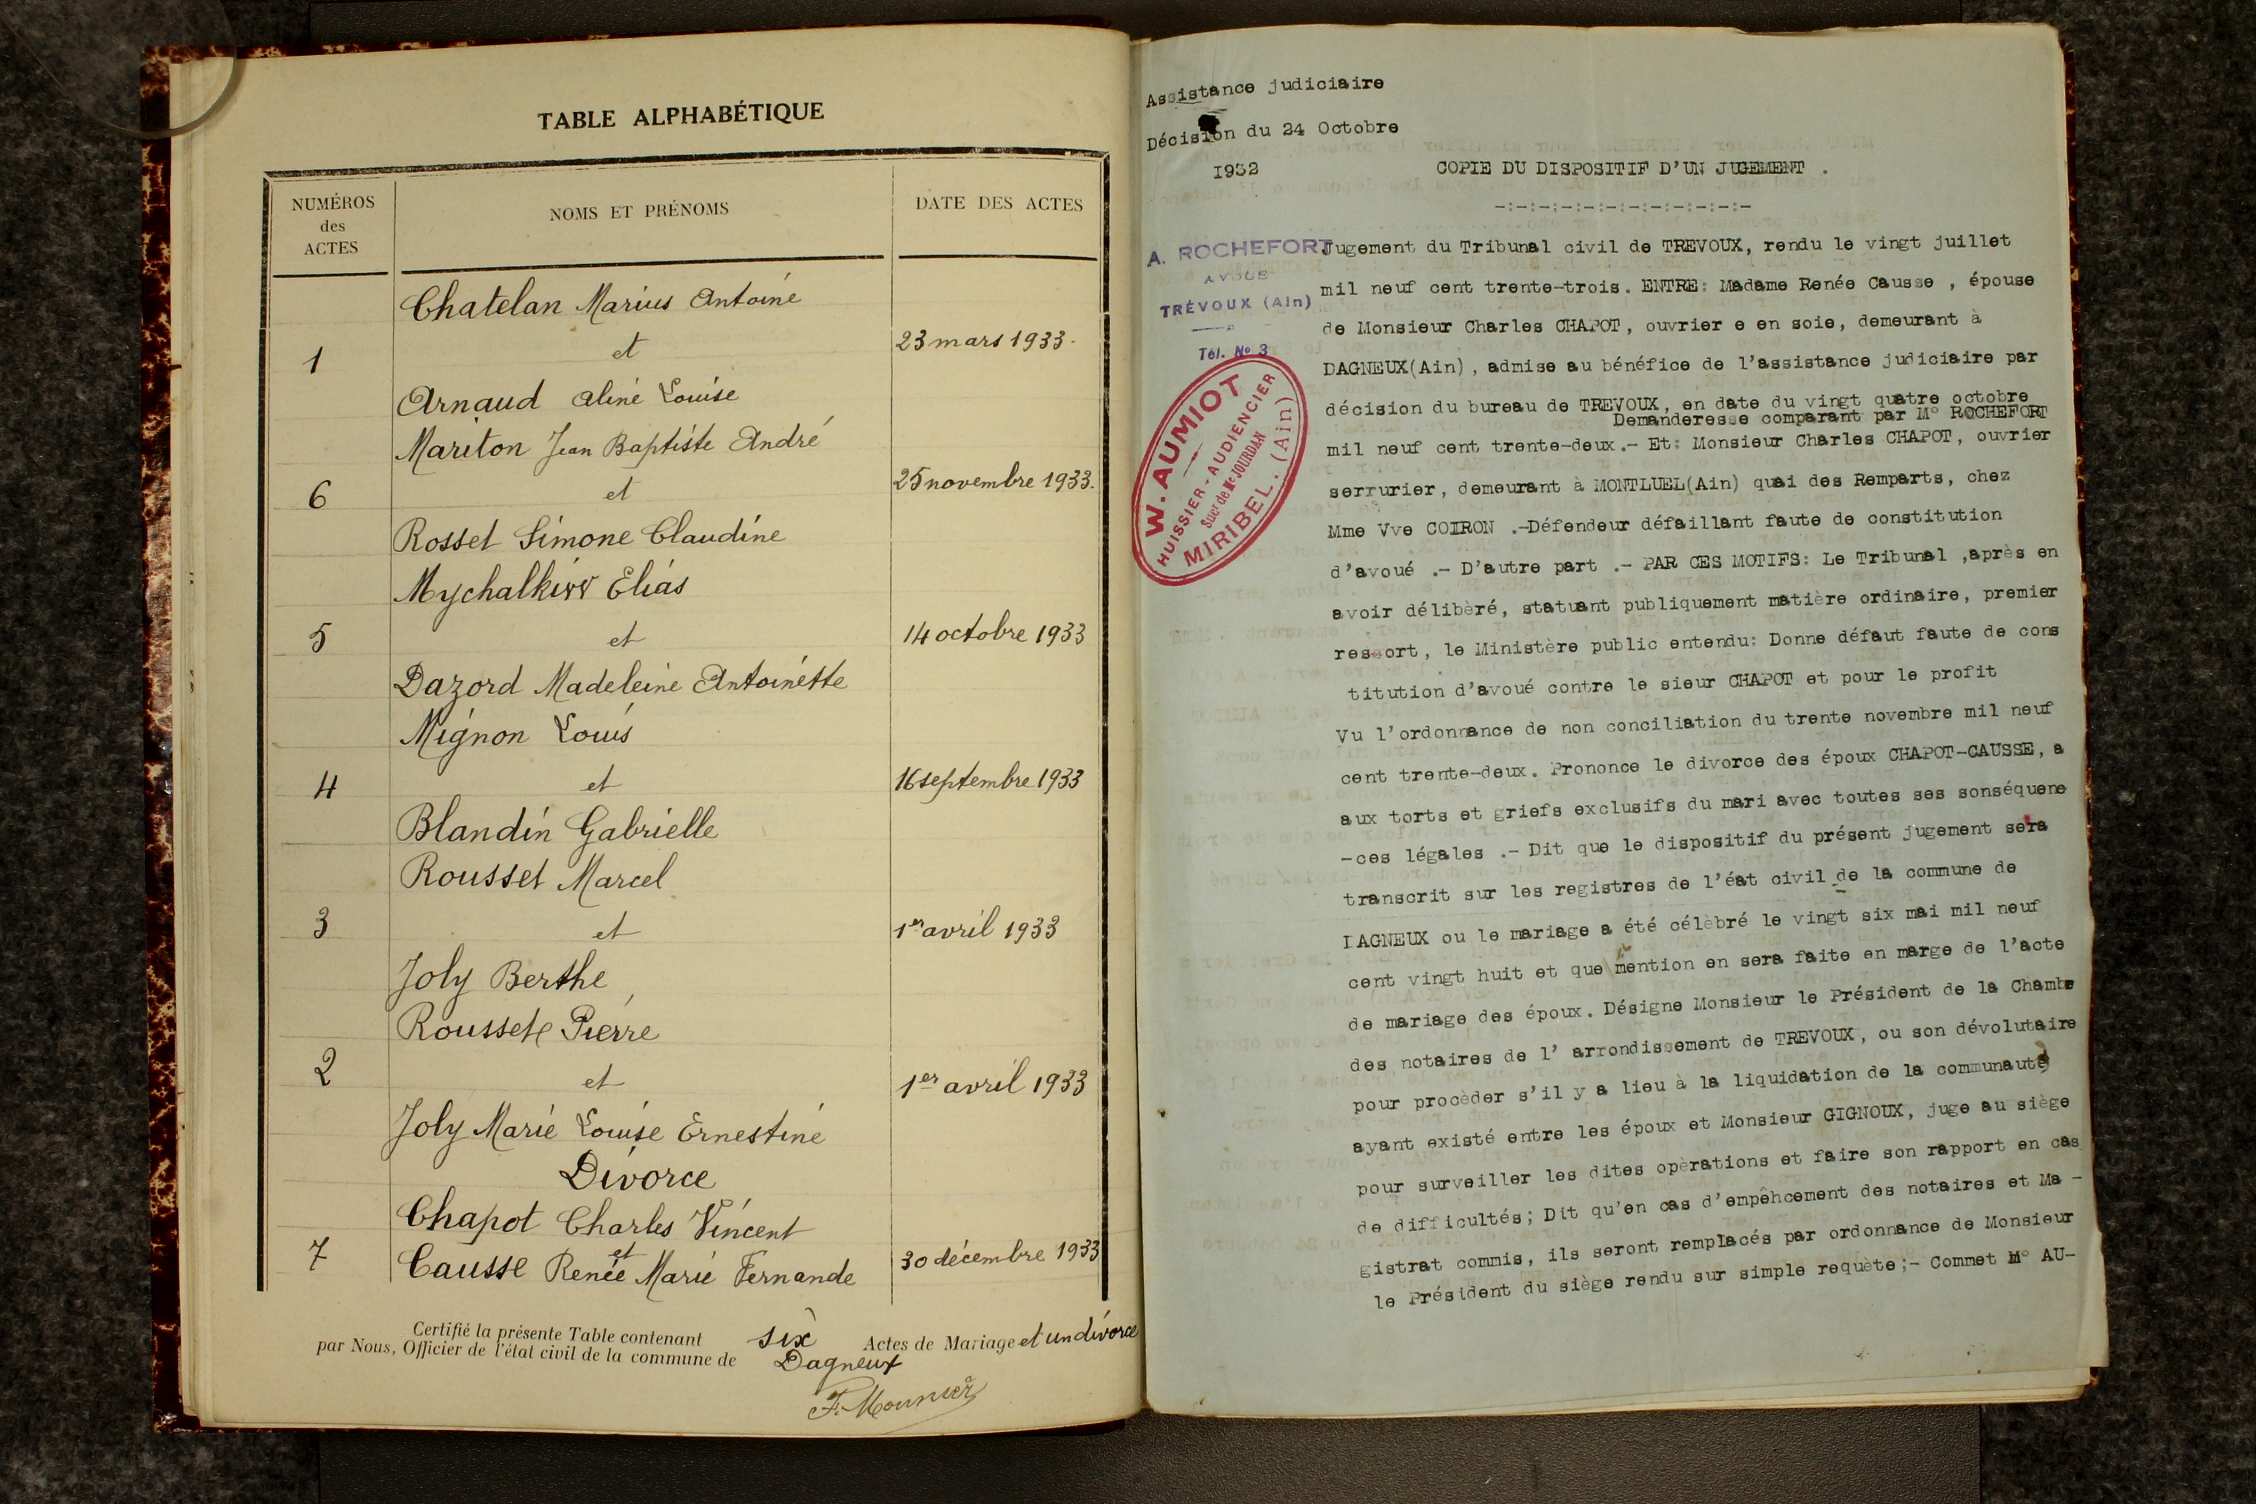 TABLE ALPHABÉTIQUE
NUMÉROS
des
ACTES
NOMS ET PRÉNOMS
DATE DES ACTES
Chatelan Marius Antoine
1 et 23 mars 1933.
Arnaud Aline Louise
Mariton Jean Baptiste André
6 et 25 novembre 1933.
Rosset Simone Claudine
Mychalkiw Elias
5 et 14 octobre 1933
Dazord Madeleine Antoinette
Mignon Louis
4 et 16 septembre 1933
Blandin Gabrielle
Rousset Marcel
3 et 1er avril 1933
Joly Berthe
Rousset Pierre
2 et 1er avril 1933
Joly Marie Louise Ernestine
Divorce
Chapot Charles Vincent
et
7 Causse Renée Marie Fernande 30 décembre 1933
Certifié la présente Table contenant six Actes de Mariage et un divorce
par Nous, Officier de l'état civil de la commune de Dagneux
F. Mounier
Assistance judiciaire
Décision du 24 Octobre
I932
COPIE DU DISPOSITIF D'UN JUGEMENT .
-:-:-:-:-:-:-:-:-:-:-:-
A. ROCHEFORT
AVOUÉ
TRÉVOUX (Ain)
Tél. No 3
W. AUMIOT
HUISSIER-AUDIENCIER
Sucr de Me JOURDAN
MIRIBEL. (Ain)
Jugement du Tribunal civil de TREVOUX, rendu le vingt juillet
mil neuf cent trente-trois. ENTRE: Madame Renée Causse , épouse
de Monsieur Charles CHAPOT, ouvrier e en soie, demeurant à
DAGNEUX(Ain), admise au bénéfice de l'assistance judiciaire par
décision du bureau de TREVOUX, en date du vingt quatre octobre
Demanderesse comparant par M° ROCHEFORT
mil neuf cent trente-deux.- Et: Monsieur Charles CHAPOT, ouvrier
serrurier, demeurant à MONTLUEL(Ain) quai des Remparts, chez
Mme Vve COIRON .-Défendeur défaillant faute de constitution
d'avoué .- D'autre part .- PAR CES MOTIFS: Le Tribunal ,après en
avoir délibèré, statuant publiquement matière ordinaire, premier
ressort, le Ministère public entendu: Donne défaut faute de cons
titution d'avoué contre le sieur CHAPOT et pour le profit
Vu l'ordonnance de non conciliation du trente novembre mil neuf
cent trente-deux. Prononce le divorce des époux CHAPOT-CAUSSE, a
aux torts et griefs exclusifs du mari avec toutes ses sonséquene
-ces légales .- Dit que le dispositif du présent jugement sera
transcrit sur les registres de l'éat civil de la commune de
DAGNEUX ou le mariage a été célèbré le vingt six mai mil neuf
cent vingt huit et que mention en sera faite en marge de l'acte
de mariage des époux. Désigne Monsieur le Président de la Chambre
des notaires de l' arrondissement de TREVOUX, ou son dévolutaire
pour procèder s'il y a lieu à la liquidation de la communauté
ayant existé entre les époux et Monsieur GIGNOUX, juge au siège
pour surveiller les dites opèrations et faire son rapport en cas
de difficultés; Dit qu'en cas d'empêhcement des notaires et Ma -
gistrat commis, ils seront remplacés par ordonnance de Monsieur
le Président du siège rendu sur simple requète;- Commet M° AU-